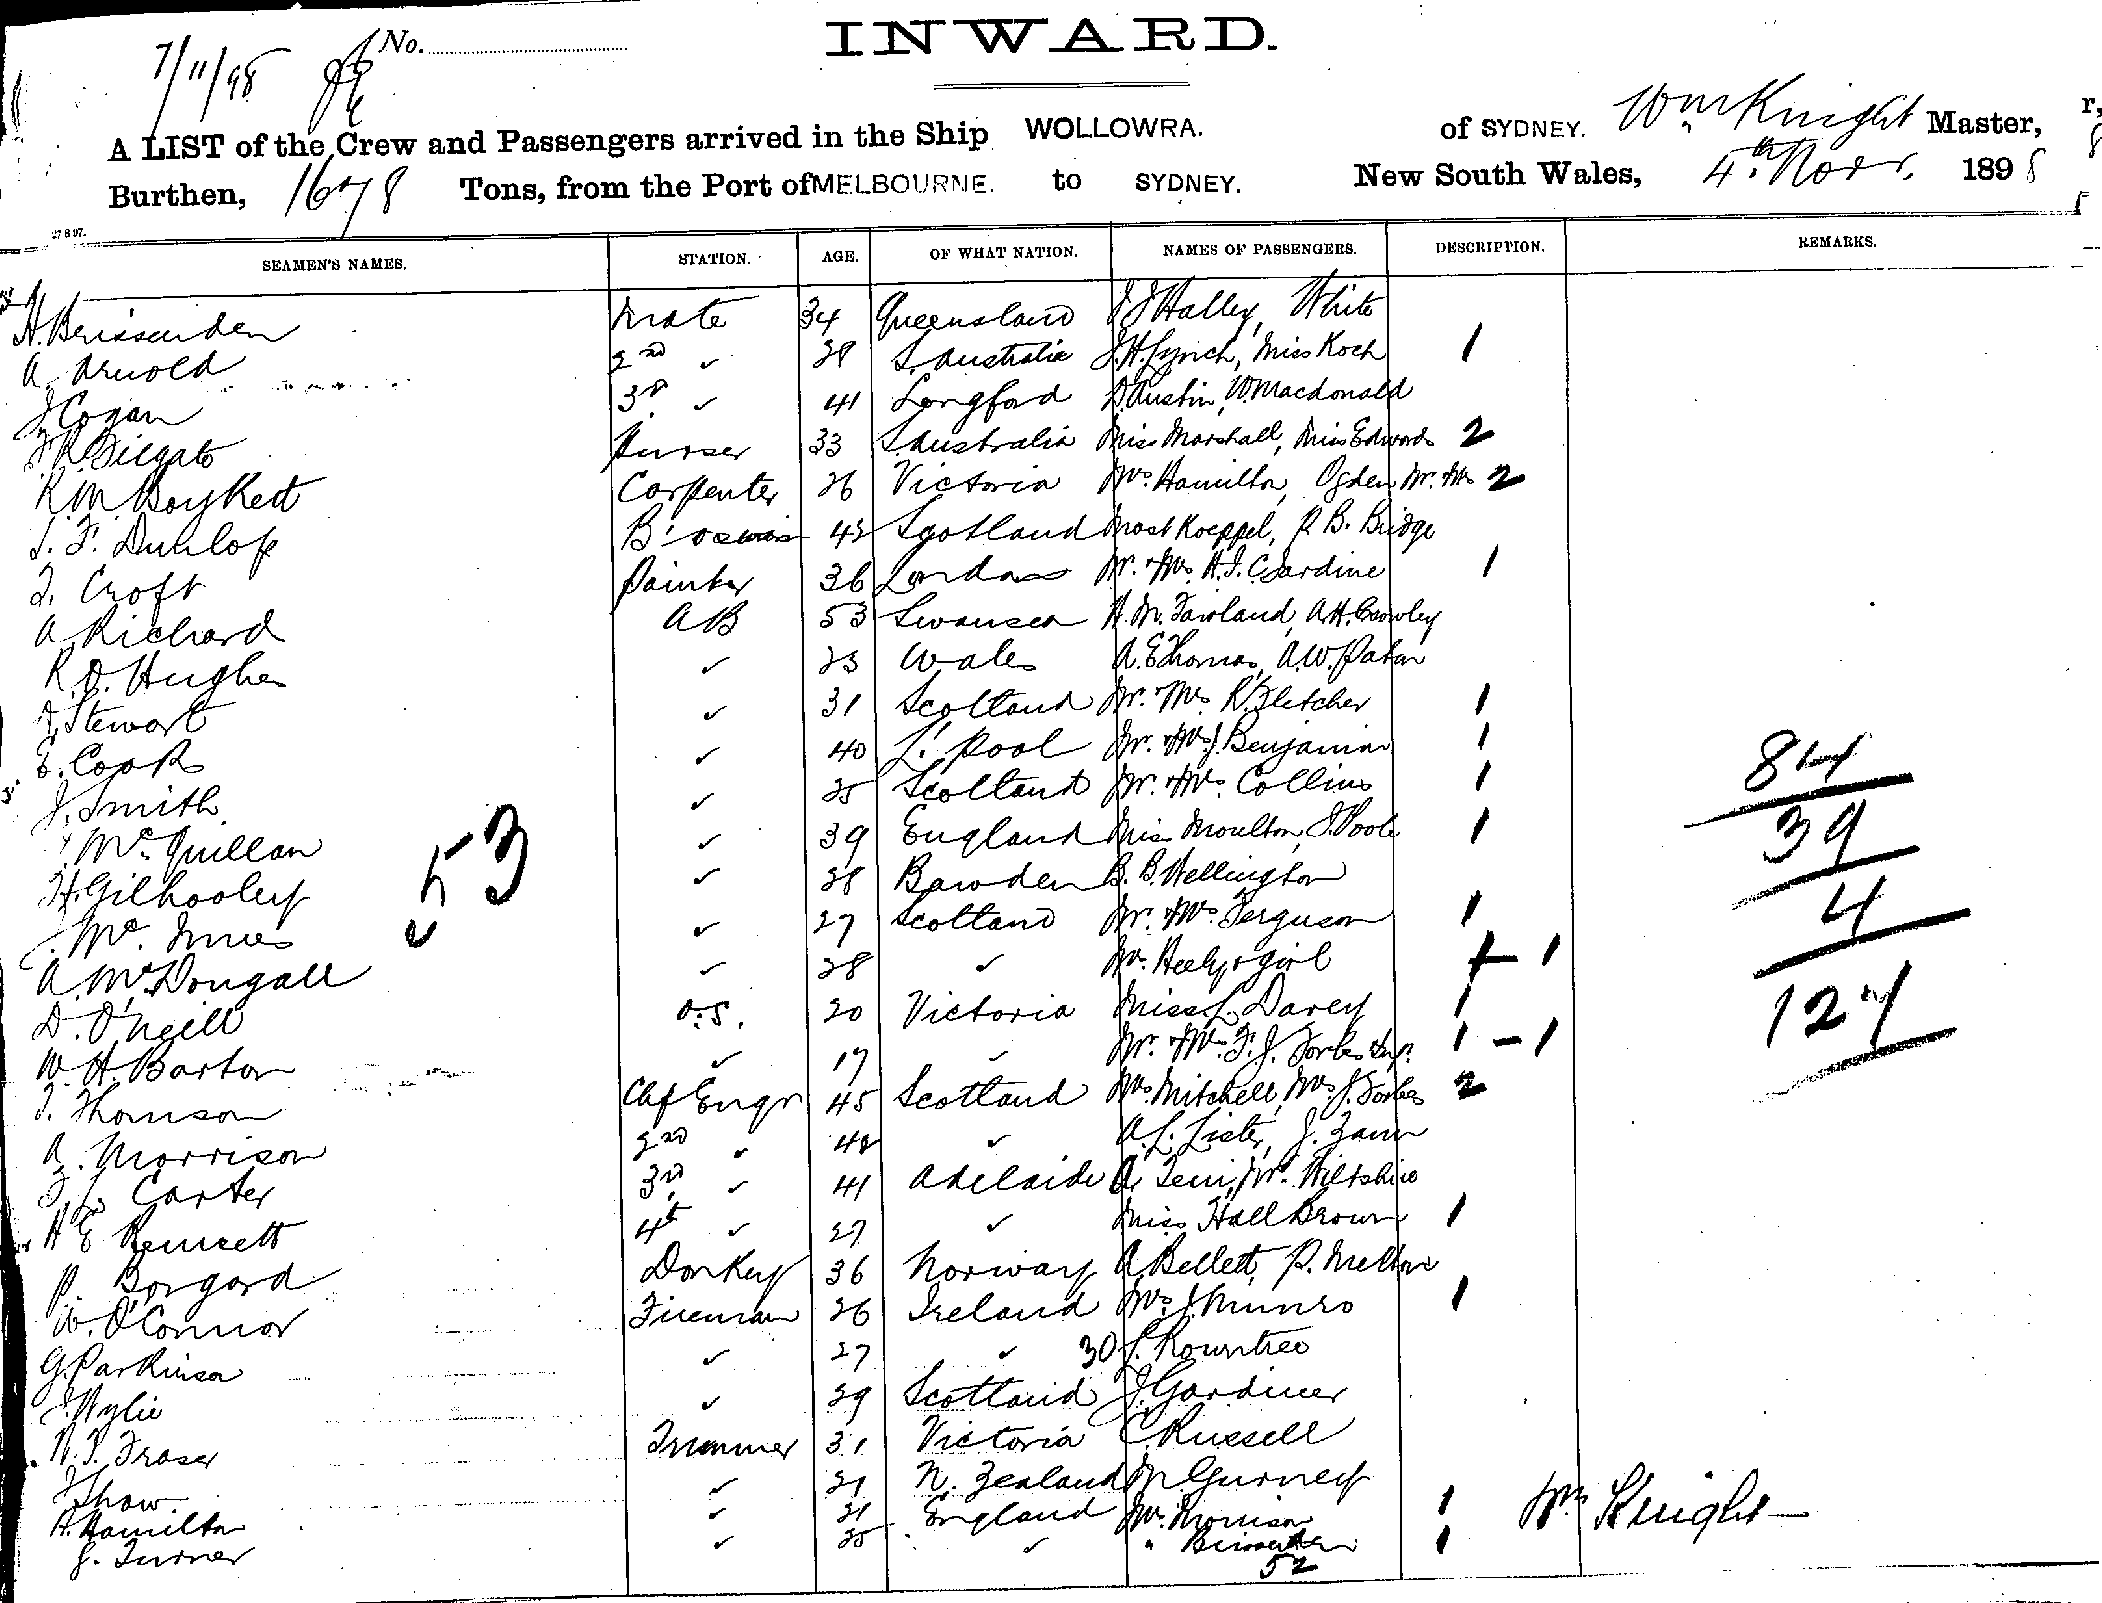 7/11/98 No.
INWARD.
A LIST of the Crew and Passengers arrived in the Ship WOLLOWRA. of SYDNEY. Wm Knight Master,
Burthen, 1678 Tons, from the Port of MELBOURNE. to SYDNEY. New South Wales, 4th Novr. 1898
27 8 97.
SEAMEN'S NAMES. STATION. AGE. OF WHAT NATION. NAMES OF PASSENGERS. DESCRIPTION. REMARKS.
H. Brissenden Mate 34 Queensland J J Halley, White
A. Arnold 2nd ✓ 28 S. Australia J. H. Lynch, Miss Koch 1
J. Cogan 3rd ✓ 41 Longford D. Austin, W. Macdonald
Purser 33 S Australia Miss Marshall, Miss Edwards 2
R. M. Boykett Carpenter 26 Victoria Mrs. Hamilton, Ogden Mr. Mrs 2
J. F. Dunlop B'oswain 42 Scotland Most Koeppel, P. B. Bridge
F. Croft Painter 36 London Mr. + Mrs. H. J. C. Jardine 1
A. Richard AB 53 Swansea H. M. Fairland, A. H. Crowley
R. O. Hughes ✓ 23 Wales A. E Thomas, A. W. Paton
D. Stewart ✓ 31 Scotland Mr. + Mrs R. Fletcher 1
E. Cook ✓ 40 L'pool Mr. + Mrs J. Benjamin 1
J. Smith ✓ 25 Scotland Mr. + Mrs. Collins 1
84
McQuillan ✓ 39 England Miss Moulton, J. Poole 1
39
H. Gilhooley ✓ 28 Bawden B. B. Wellington
53
4
J. McInnes ✓ 27 Scotland Mr. + Mrs. Ferguson 1
A. McDougall ✓ 28 ✓ Mr. Healy + girl 1
127
D. O'Neill O.S. 20 Victoria Miss L. Davey 1
W. H. Barton ✓ 17 ✓ Mr. + Mrs. F. J. Forbes + Inf. 1 - 1
J. Thomson Chf Engr 45 Scotland Mrs. Mitchell, Mrs. J. Forbes 2
A. Morrison 2nd ✓ 42 ✓ A. L. Lister, J. Zann
F. J. Carter 3rd ✓ 41 Adelaide Wiltshire
H E Rennett 4th ✓ 27 ✓ Miss Hall Brown 1
P. Borgard Donkey 36 Norway A Bellett, P. Melton
W. O'Connor Fireman 26 Ireland Mrs. J. Munro 1
G. Parkinson ✓ 27 ✓ 30 L. Rowntree
J. Wylie ✓ 29 Scotland J. Gardiner
N. T. Fraser Trimmer 31 Victoria C. Russell
J Shaw. ✓ 21 N. Zealand M Gurney
H. Hamilton ✓ 21 England Mrs. Morrison 1 Wm Knight
J. Turner ✓ 25 ✓ " Brissenden 1
52